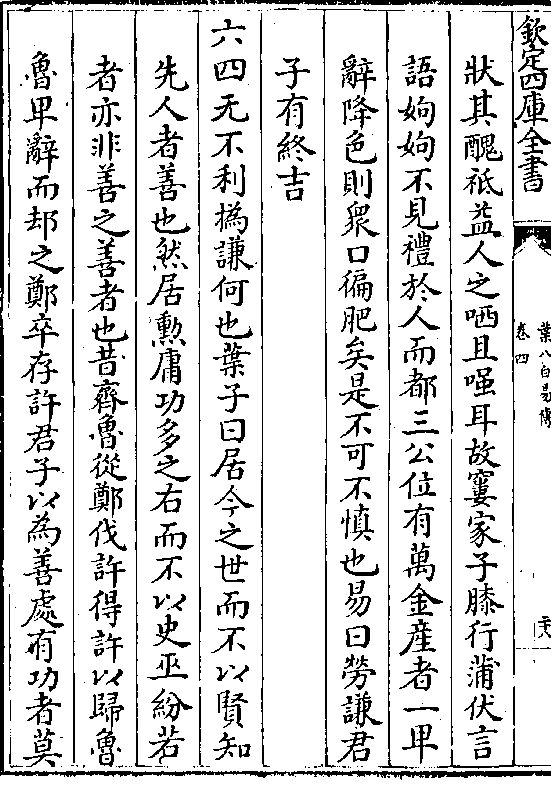 欽定四庫全書
葉八白易傳
卷四
狀其醜祗益人之哂且嗤耳故窶家子膝行蒲伏言
語姁姁不見禮於人而都三公位有萬金産者一卑
辭降色則衆口徧肥矣是不可不慎也易曰勞謙君
子有終吉
六四无不利撝謙何也葉子曰居今之世而不以賢知
先人者善也然居勲庸功多之右而不以史巫紛若
者亦非善之善者也昔齊魯從鄭伐許得許以歸魯
魯卑辭而却之鄭卒存許君子以為善處有功者莫